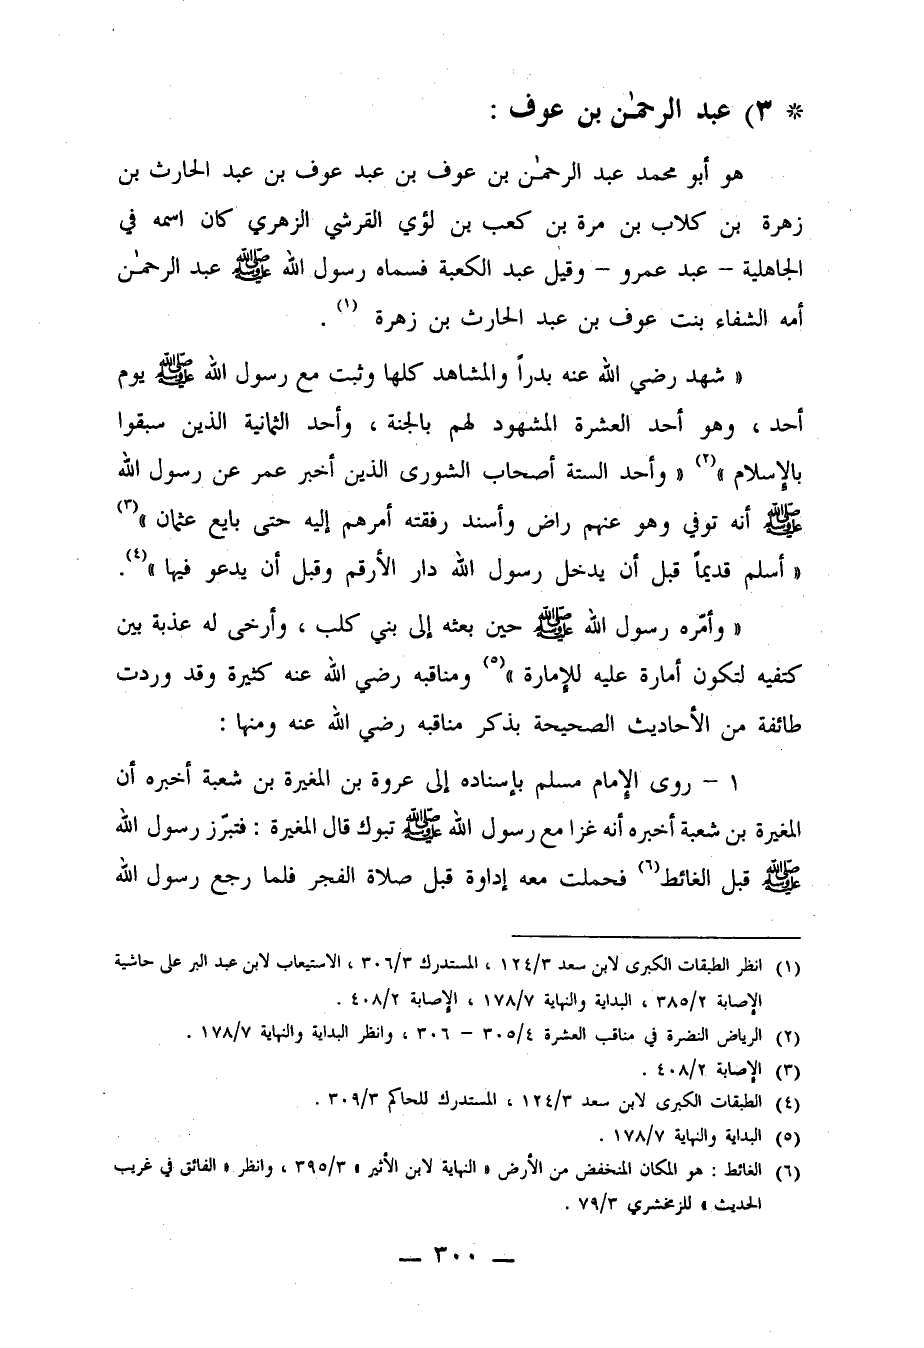 * ٣) عبد الرحمٰن بن عوف :
هو أبو محمد عبد الرحمٰن بن عوف بن عبد عوف بن عبد الحارث بن
زهرة بن كلاب بن مرة بن كعب بن لؤي القرشي الزهري كان اسمه في
الجاهلية – عبد عمرو – وقيل عبد الكعبة فسماه رسول الله ﷺ عبد الرحمٰن
أمه الشفاء بنت عوف بن عبد الحارث بن زهرة (١) .
« شهد رضي الله عنه بدراً والمشاهد كلها وثبت مع رسول الله ﷺ يوم
أحد ، وهو أحد العشرة المشهود لهم بالجنة ، وأحد الثمانية الذين سبقوا
بالإسلام »(٢) « وأحد الستة أصحاب الشورى الذين أخبر عمر عن رسول الله
ﷺ أنه توفي وهو عنهم راض وأسند رفقته أمرهم إليه حتى بايع عثمان »(٣)
« أسلم قديماً قبل أن يدخل رسول الله دار الأرقم وقبل أن يدعو فيها »(٤).
« وأمّره رسول الله ﷺ حين بعثه إلى بني كلب ، وأرخى له عذبة بين
كتفيه لتكون أمارة عليه للإمارة »(٥) ومناقبه رضي الله عنه كثيرة وقد وردت
طائفة من الأحاديث الصحيحة بذكر مناقبه رضي الله عنه ومنها :
١ – روى الإمام مسلم بإسناده إلى عروة بن المغيرة بن شعبة أخبره أن
المغيرة بن شعبة أخبره أنه غزا مع رسول الله ﷺ تبوك قال المغيرة : فتبرّز رسول الله
ﷺ قبل الغائط(٦) فحملت معه إداوة قبل صلاة الفجر فلما رجع رسول الله
(١) انظر الطبقات الكبرى لابن سعد ١٢٤/٣ ، المستدرك ٣٠٦/٣ ، الاستيعاب لابن عبد البر على حاشية
الإصابة ٣٨٥/٢ ، البداية والنهاية ١٧٨/٧ ، الإصابة ٤٠٨/٢ .
(٢) الرياض النضرة في مناقب العشرة ٣٠٥/٤ – ٣٠٦ ، وانظر البداية والنهاية ١٧٨/٧ .
(٣) الإصابة ٤٠٨/٢ .
(٤) الطبقات الكبرى لابن سعد ١٢٤/٣ ، المستدرك للحاكم ٣٠٩/٣ .
(٥) البداية والنهاية ١٧٨/٧ .
(٦) الغائط : هو المكان المنخفض من الأرض « النهاية لابن الأثير » ٣٩٥/٣ ، وانظر « الفائق في غريب
الحديث » للزمخشري ٧٩/٣ .
— ٣٠٠ —